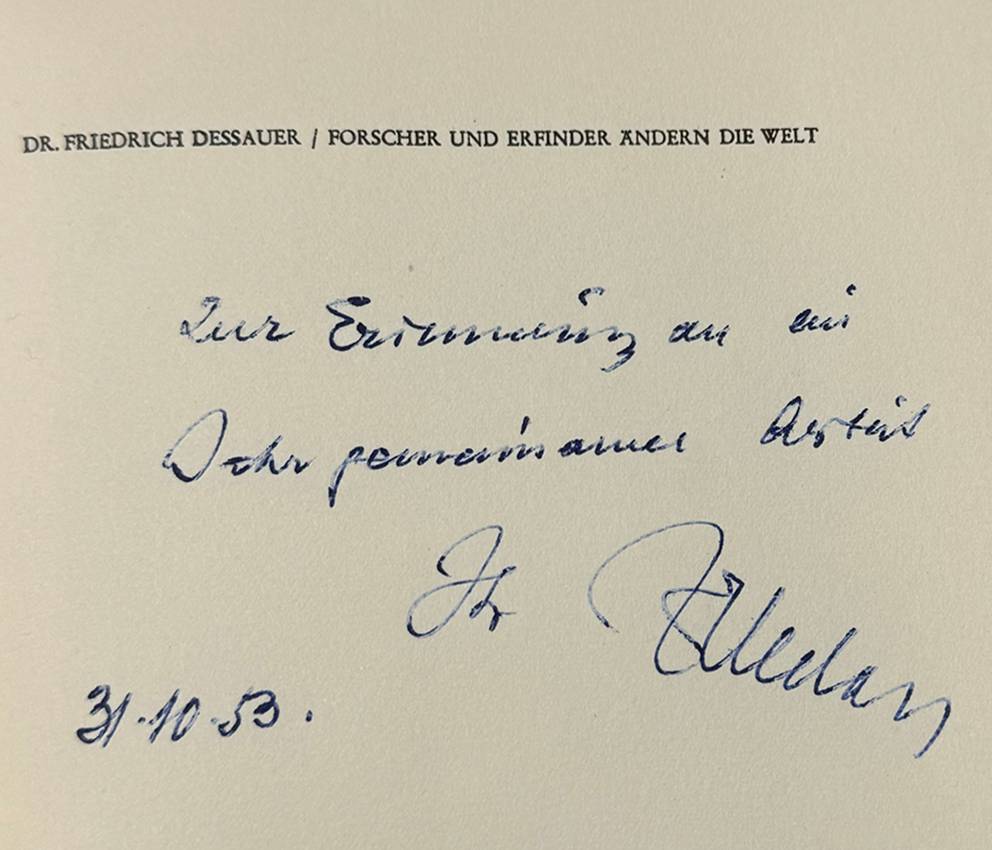 DR. FRIEDRICH DESSAUER / FORSCHER UND ERFINDER ÄNDERN DIE WELT
Zur Erinnerung an ein
Jahr gemeinsamer Arbeit
Ihr
31.10.53.